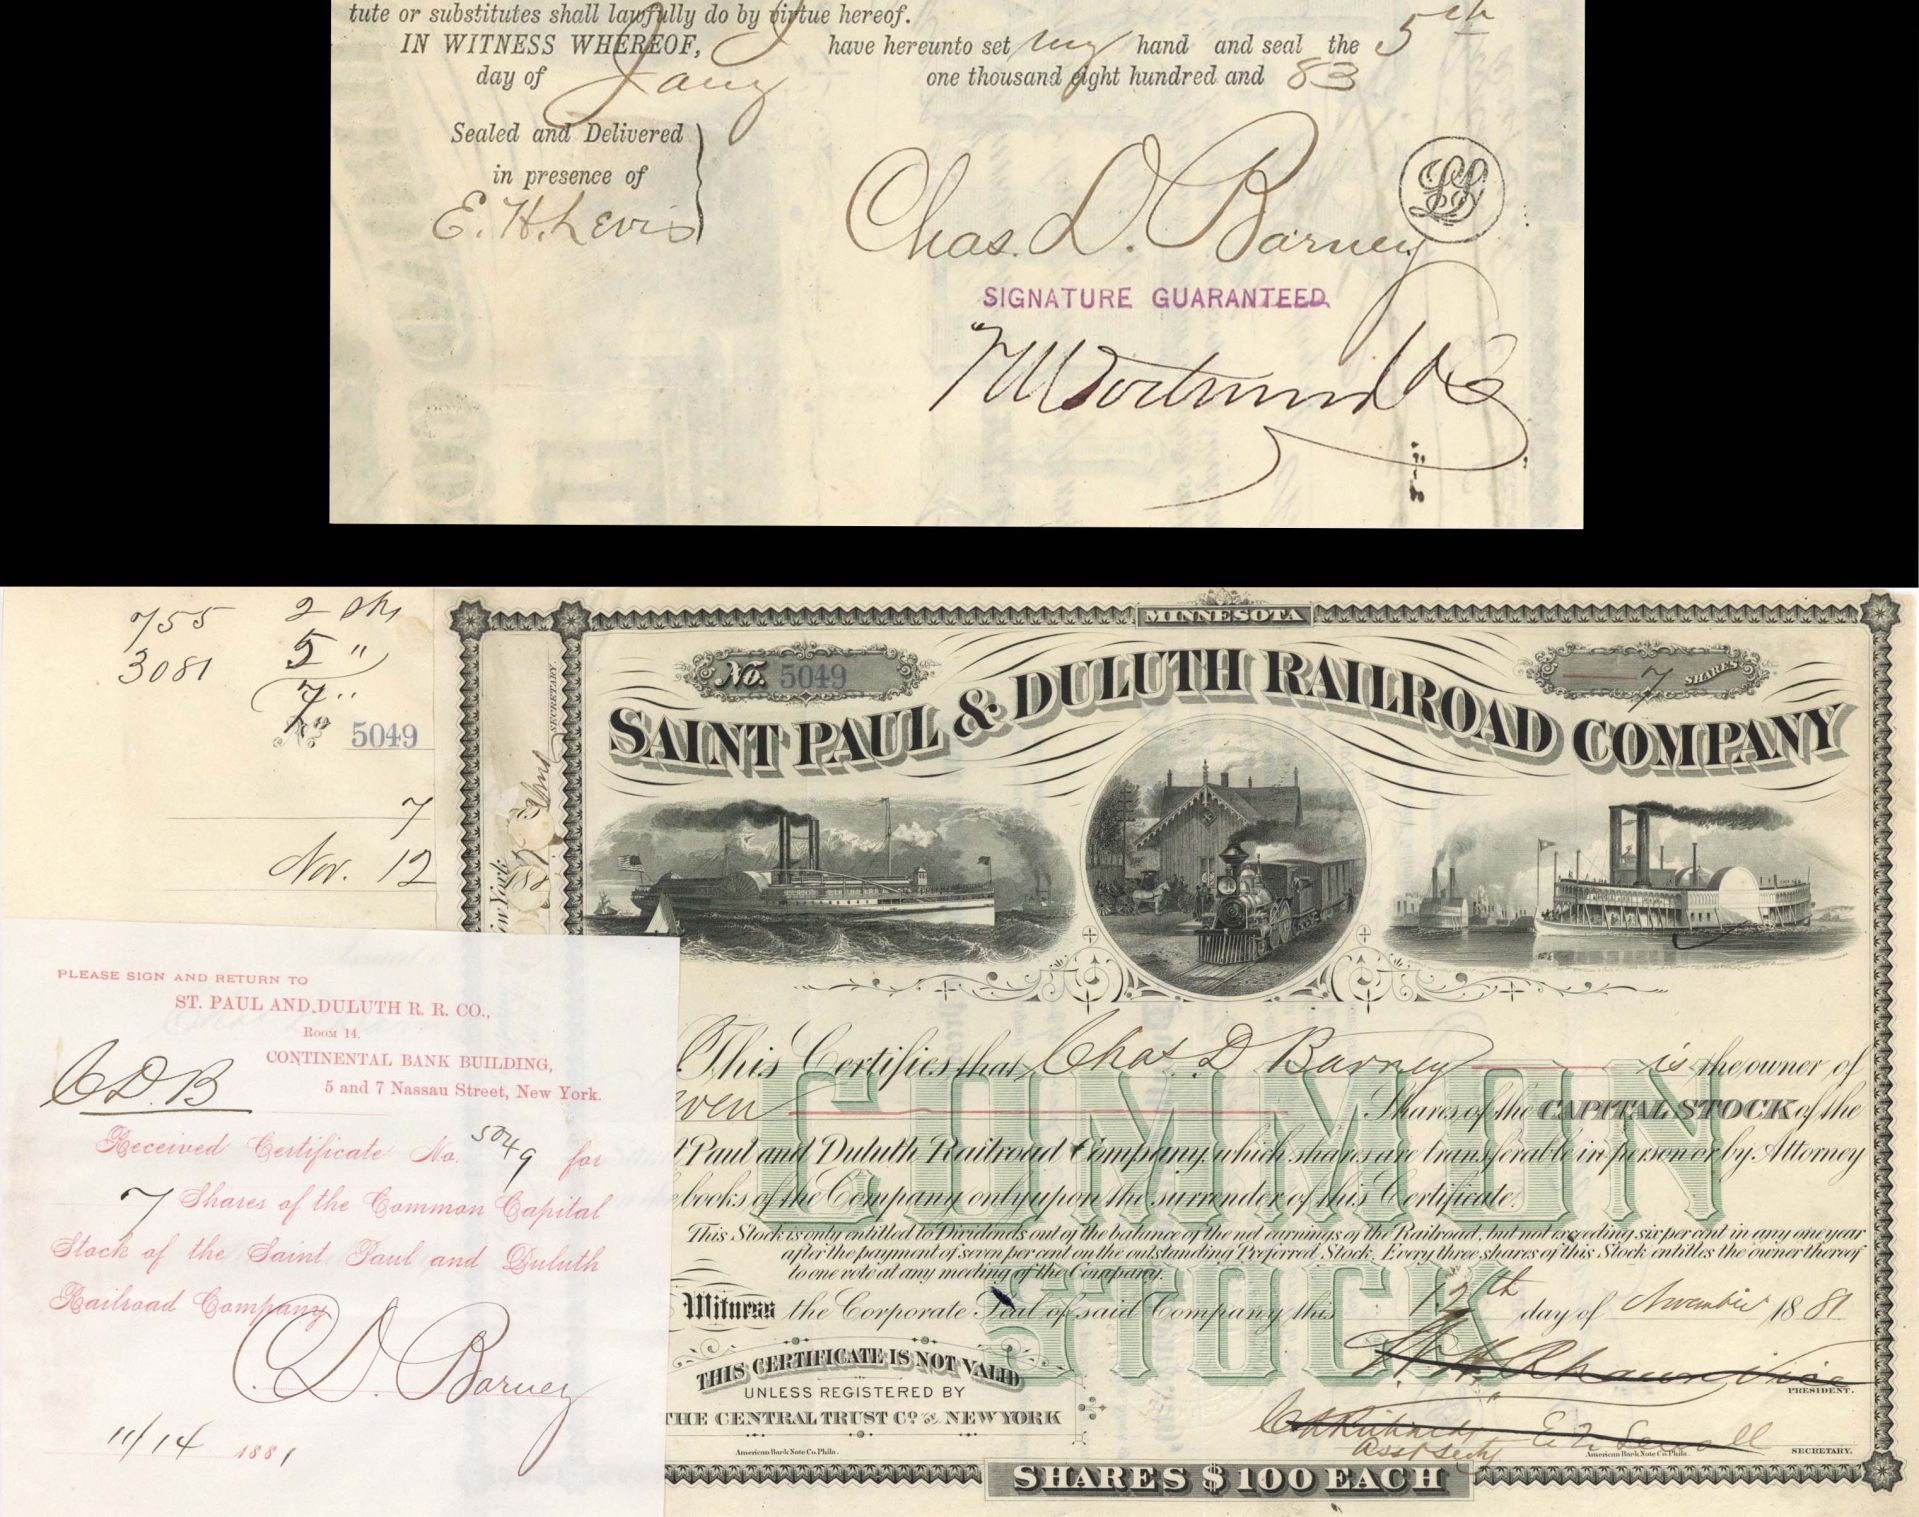 tute or substitutes shall lawfully do by virtue hereof.
IN WITNESS WHEREOF, I have hereunto set my hand and seal the 5th
day of Jany one thousand eight hundred and 83
Sealed and Delivered
in presence of
E. H. Levis
Chas. D. Barney
LS
SIGNATURE GUARANTEED
755 2 shs
3081 5 "
7 "
No 5049
7
Nov. 12
MINNESOTA
No. 5049
7 SHARES
SAINT PAUL & DULUTH RAILROAD COMPANY
SECRETARY.
New York
This Certifies that Chas D Barney is the owner of
even Shares of the CAPITAL STOCK of the
t Paul and Duluth Railroad Company, which shares are transferable in person or by Attorney
books of the Company only upon the surrender of this Certificate.
This Stock is only entitled to Dividends out of the balance of the net earnings of the Railroad, but not exceeding six per cent in any one year
after the payment of seven per cent on the outstanding Preferred Stock. Every three shares of this Stock entitles the owner thereof
to one vote at any meeting of the Company.
COMMON
STOCK
Witness the Corporate Seal of said Company this 12th day of November 1881
PRESIDENT.
THIS CERTIFICATE IS NOT VALID
UNLESS REGISTERED BY
THE CENTRAL TRUST CO OF NEW YORK
Asst Secty
SECRETARY.
American Bank Note Co. Phila.
American Bank Note Co. Phila.
SHARES $100 EACH
PLEASE SIGN AND RETURN TO
ST. PAUL AND DULUTH R. R. CO.,
ROOM 14.
CONTINENTAL BANK BUILDING,
5 and 7 Nassau Street, New York.
C D. B
Received Certificate No. 5049 for
7 Shares of the Common Capital
Stock of the Saint Paul and Duluth
Railroad Company
C. D. Barney
11/14 1881